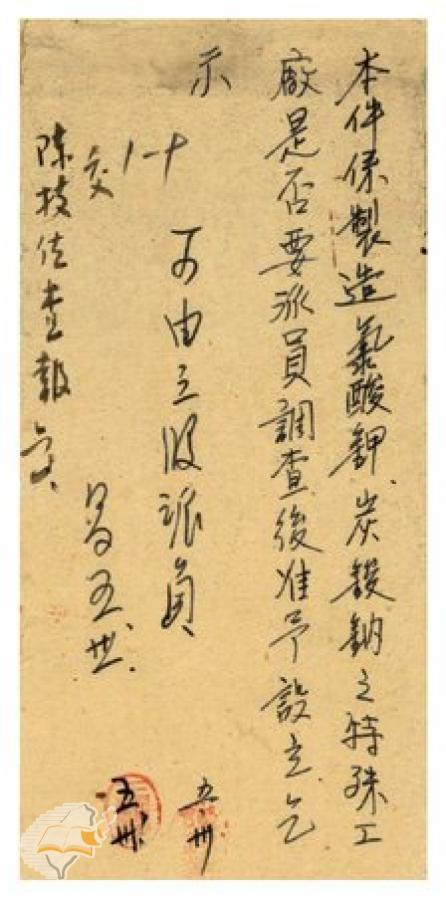 本件係製造氯酸鉀、炭酸鈉之特殊工
廠是否要派員調查後准予設立乞
示
五卅
可由主股派員
十一
交
陳技佐查報
五卅